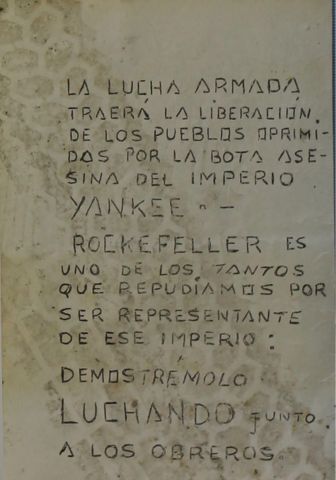 LA LUCHA ARMADA
TRAERÁ LA LIBERACIÓN.
DE LOS PUEBLOS OPRIMI-
DOS POR LA BOTA ASE-
SINA DEL IMPERIO
YANKEE " —
ROCKEFELLER ES
UNO DE LOS TANTOS
QUE REPUDIAMOS POR
SER REPRESENTANTE
DE ESE IMPERIO :
DEMOSTRÉMOLO
LUCHANDO JUNTO
A LOS OBREROS.